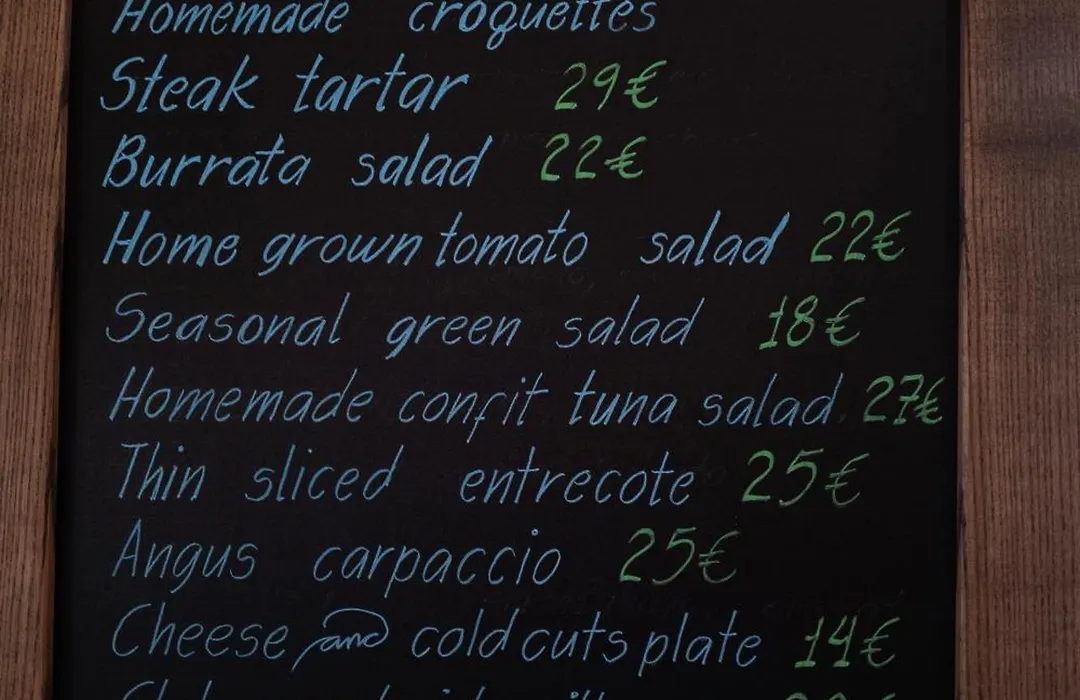 Homemade croquettes
Steak tartar 29€
Burrata salad 22€
Home grown tomato salad 22€
Seasonal green salad 18€
Homemade confit tuna salad 27€
Thin sliced entrecote 25€
Angus carpaccio 25€
Cheese and cold cuts plate 14€